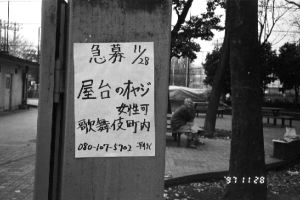 急募 11/28
屋台のオヤジ
女性可
歌舞伎町内
080-107-5702
'97 11 28